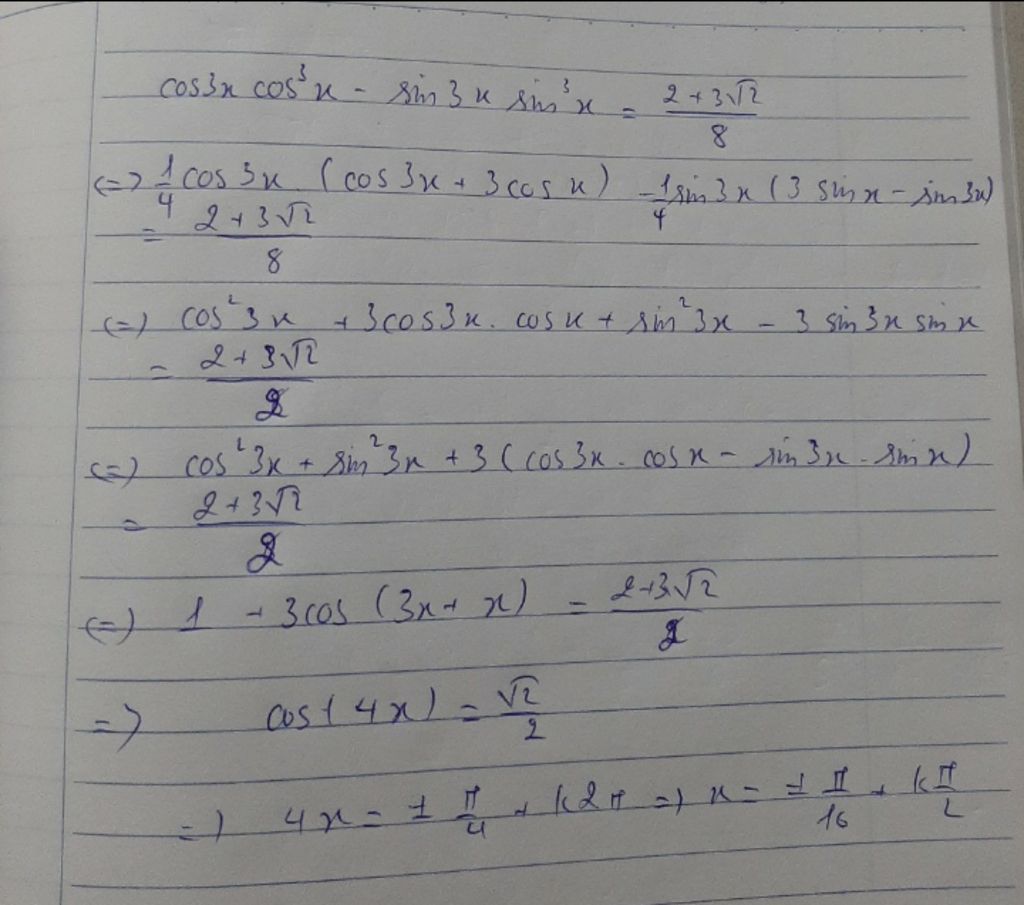 cos3x cos³x - sin3x sin³x = (2+3√2)/8
<=> 1/4 cos3x. (cos3x + 3cosx) - 1/4 sin3x (3sinx - sin3x)
= (2+3√2)/8
<=> cos²3x + 3cos3x. cosx + sin²3x - 3sin3x sinx
= (2+3√2)/2
<=> cos²3x + sin²3x + 3(cos3x. cosx - sin3x. sinx)
= (2+3√2)/2
<=> 1 + 3cos(3x+x) = (2+3√2)/2
=> cos(4x) = √2/2
=> 4x = ± π/4 + k2π => x = ± π/16 + kπ/2